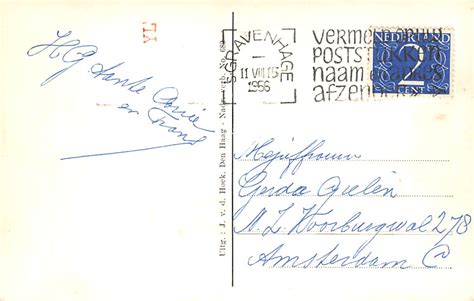 YL
H G tante Corrie
en Frans
Uitg.: J. v. d. Hoek, Den Haag - Nadr. verb. No. 689
'S GRAVENHAGE
11 VIII 15
1956
VERMELD
POSTSTUKKEN
NAAM
AFZEN
NEDERLAND
2
CENT
Mejuffrouw
Gerda Gielen
N. Z. Voorburgwal 278
Amsterdam C